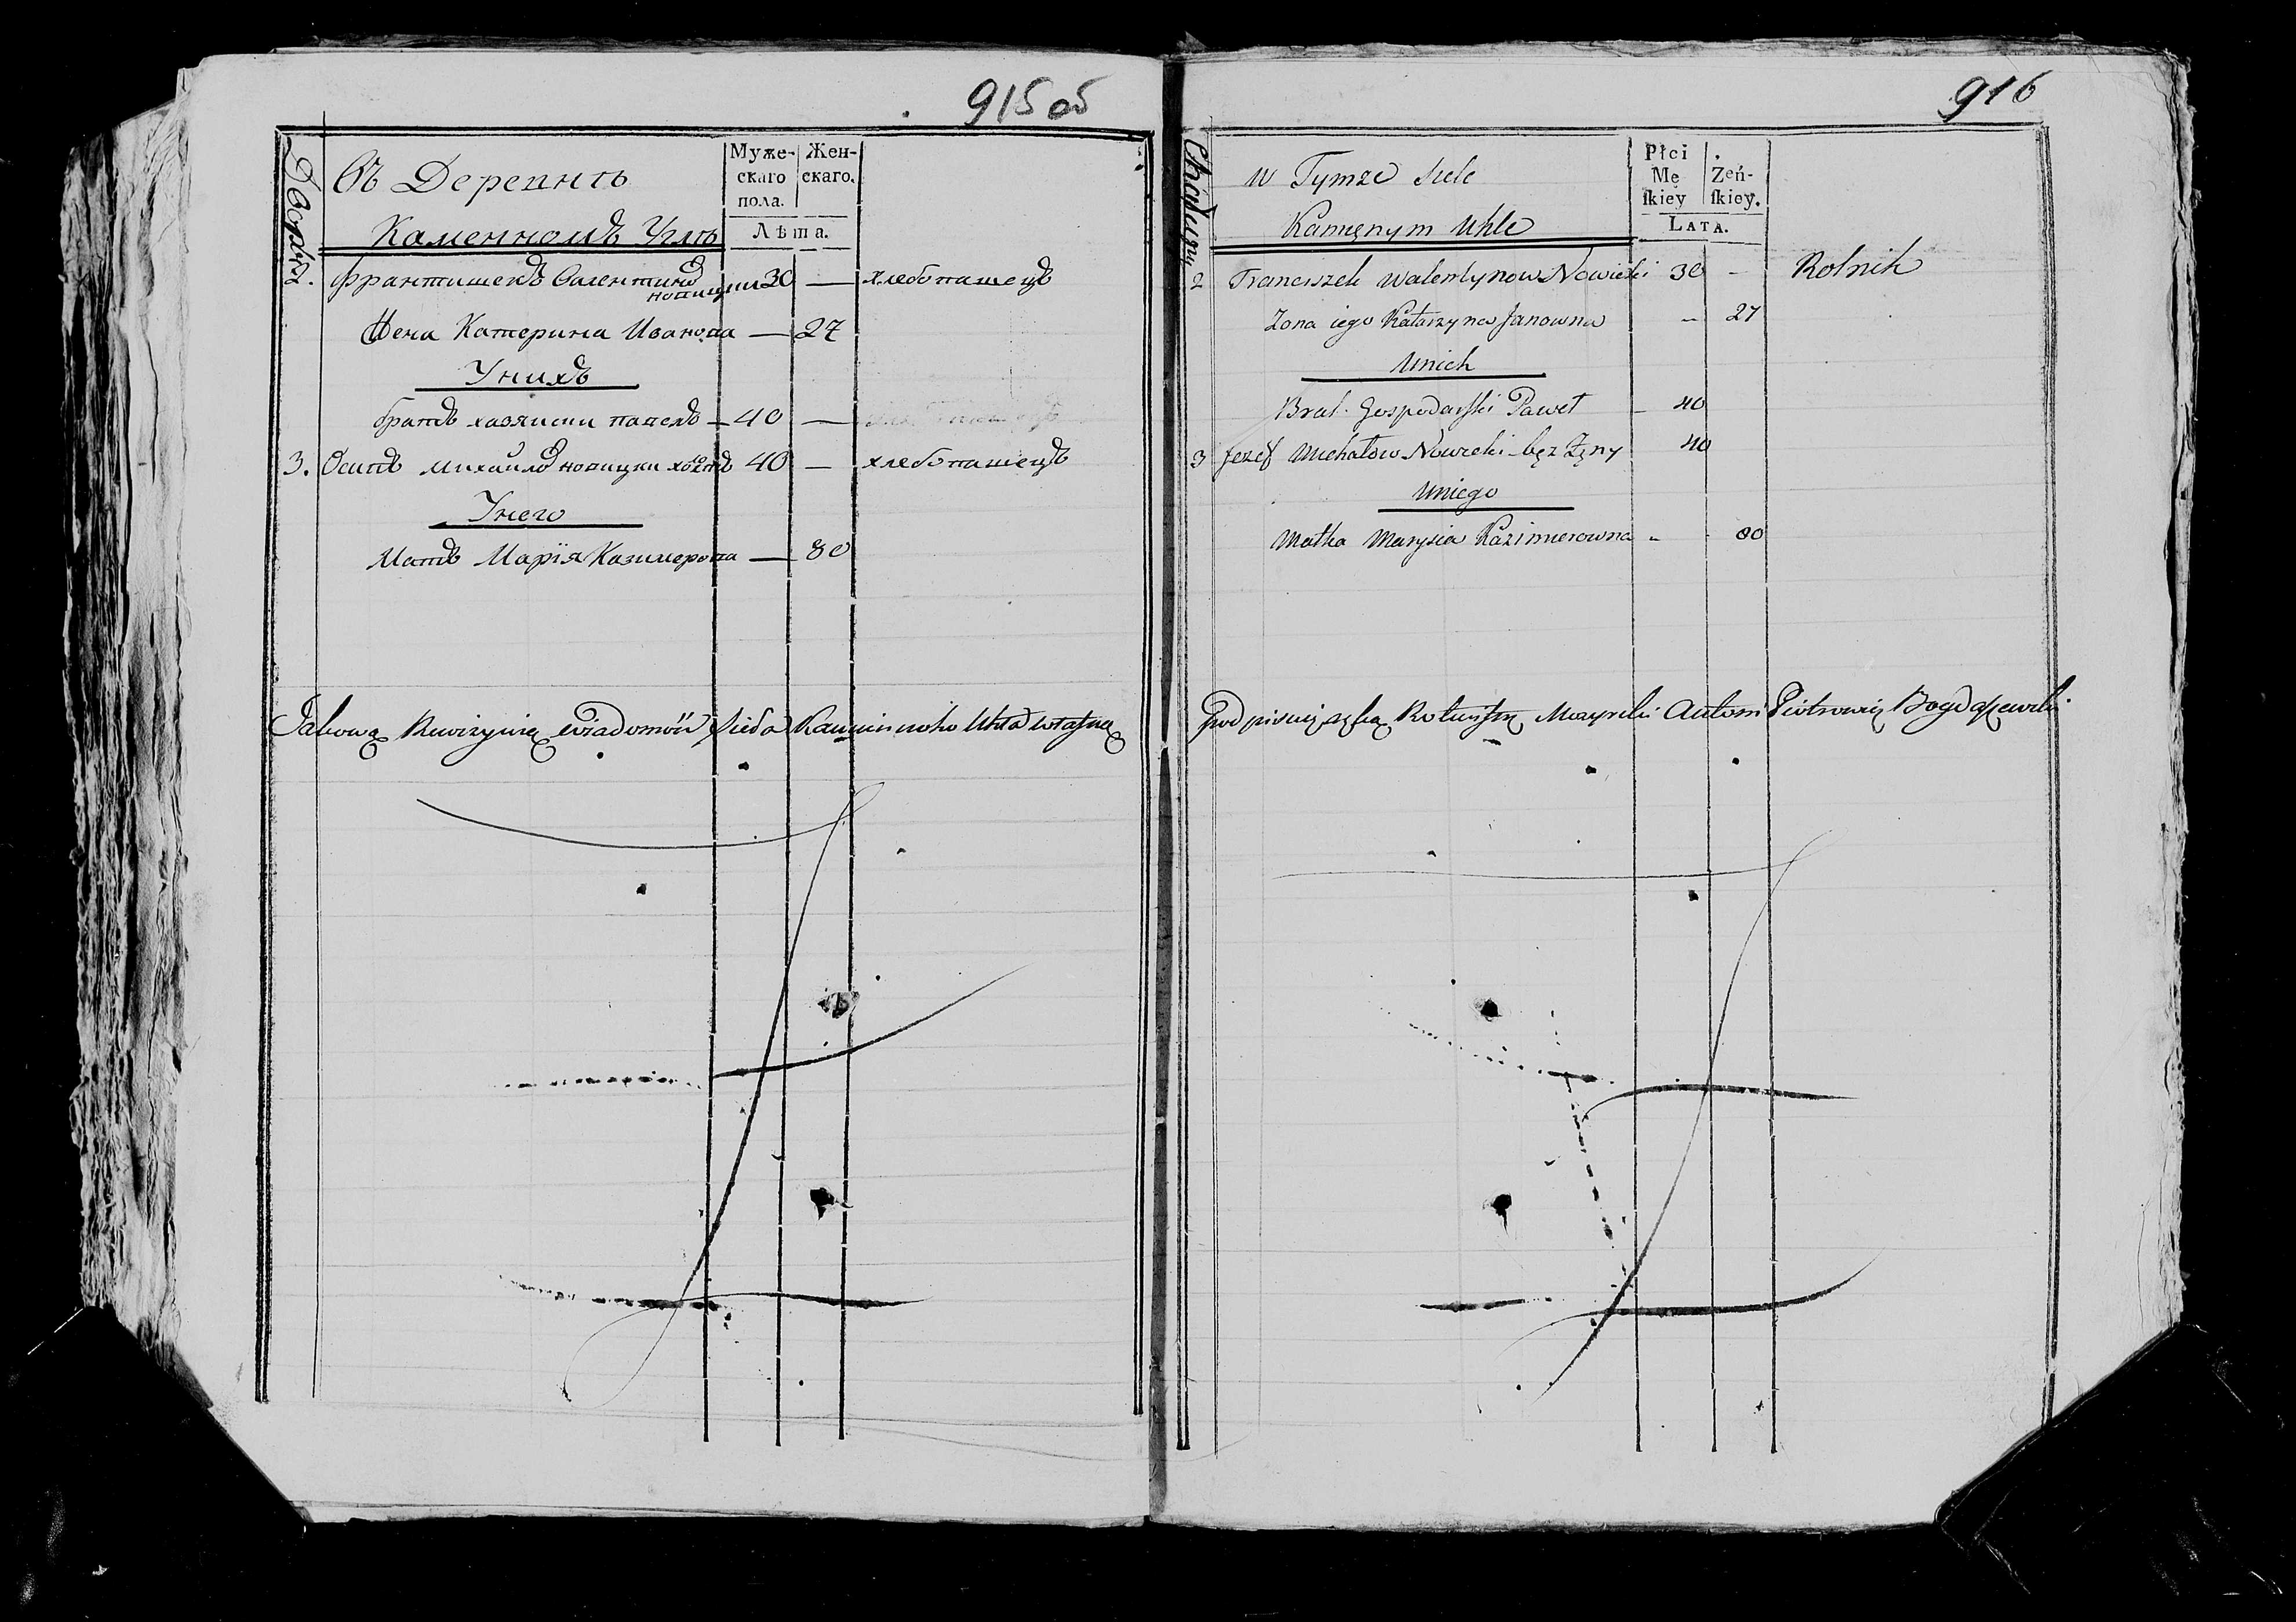 915 об
Дворы
Въ Деревнѣ
Каменномъ Углѣ
Муже-
скаго
пола.
Жен-
скаго.
Лѣта.
2. Франтишекъ Валентинъ
новицки 30 — хлебопашецъ
Жена Катерина Иванова — 27
Унихъ
братъ хазяиски павелъ — 40 —
3. Осипъ Михайлъ новицки холѣ 40 — хлебопашецъ
Унего
Матъ Марїя Казимерова — 80
Takową Rewizyię wiadomości sioła Kamiennoho Uhła własną
916
Chałupy
w Tymze siele
Kamęnym Uhle
Płci
Mę
skiey
Zeń-
skiey.
LATA.
2 Franciszek Walentynow Nowicki 30 – Rolnik
Zona iego Katarzyna Janowna – 27
Unich
Brat Gospodarski Paweł – 40
3 Jezef Michałow Nowicki bęz Zęny 40
Uniego
Matka Marysia Kazimierowna - 80
podpisuię ręką Rotmistrz Mozyrski Antoni Piotrowicz Bogdaszewski